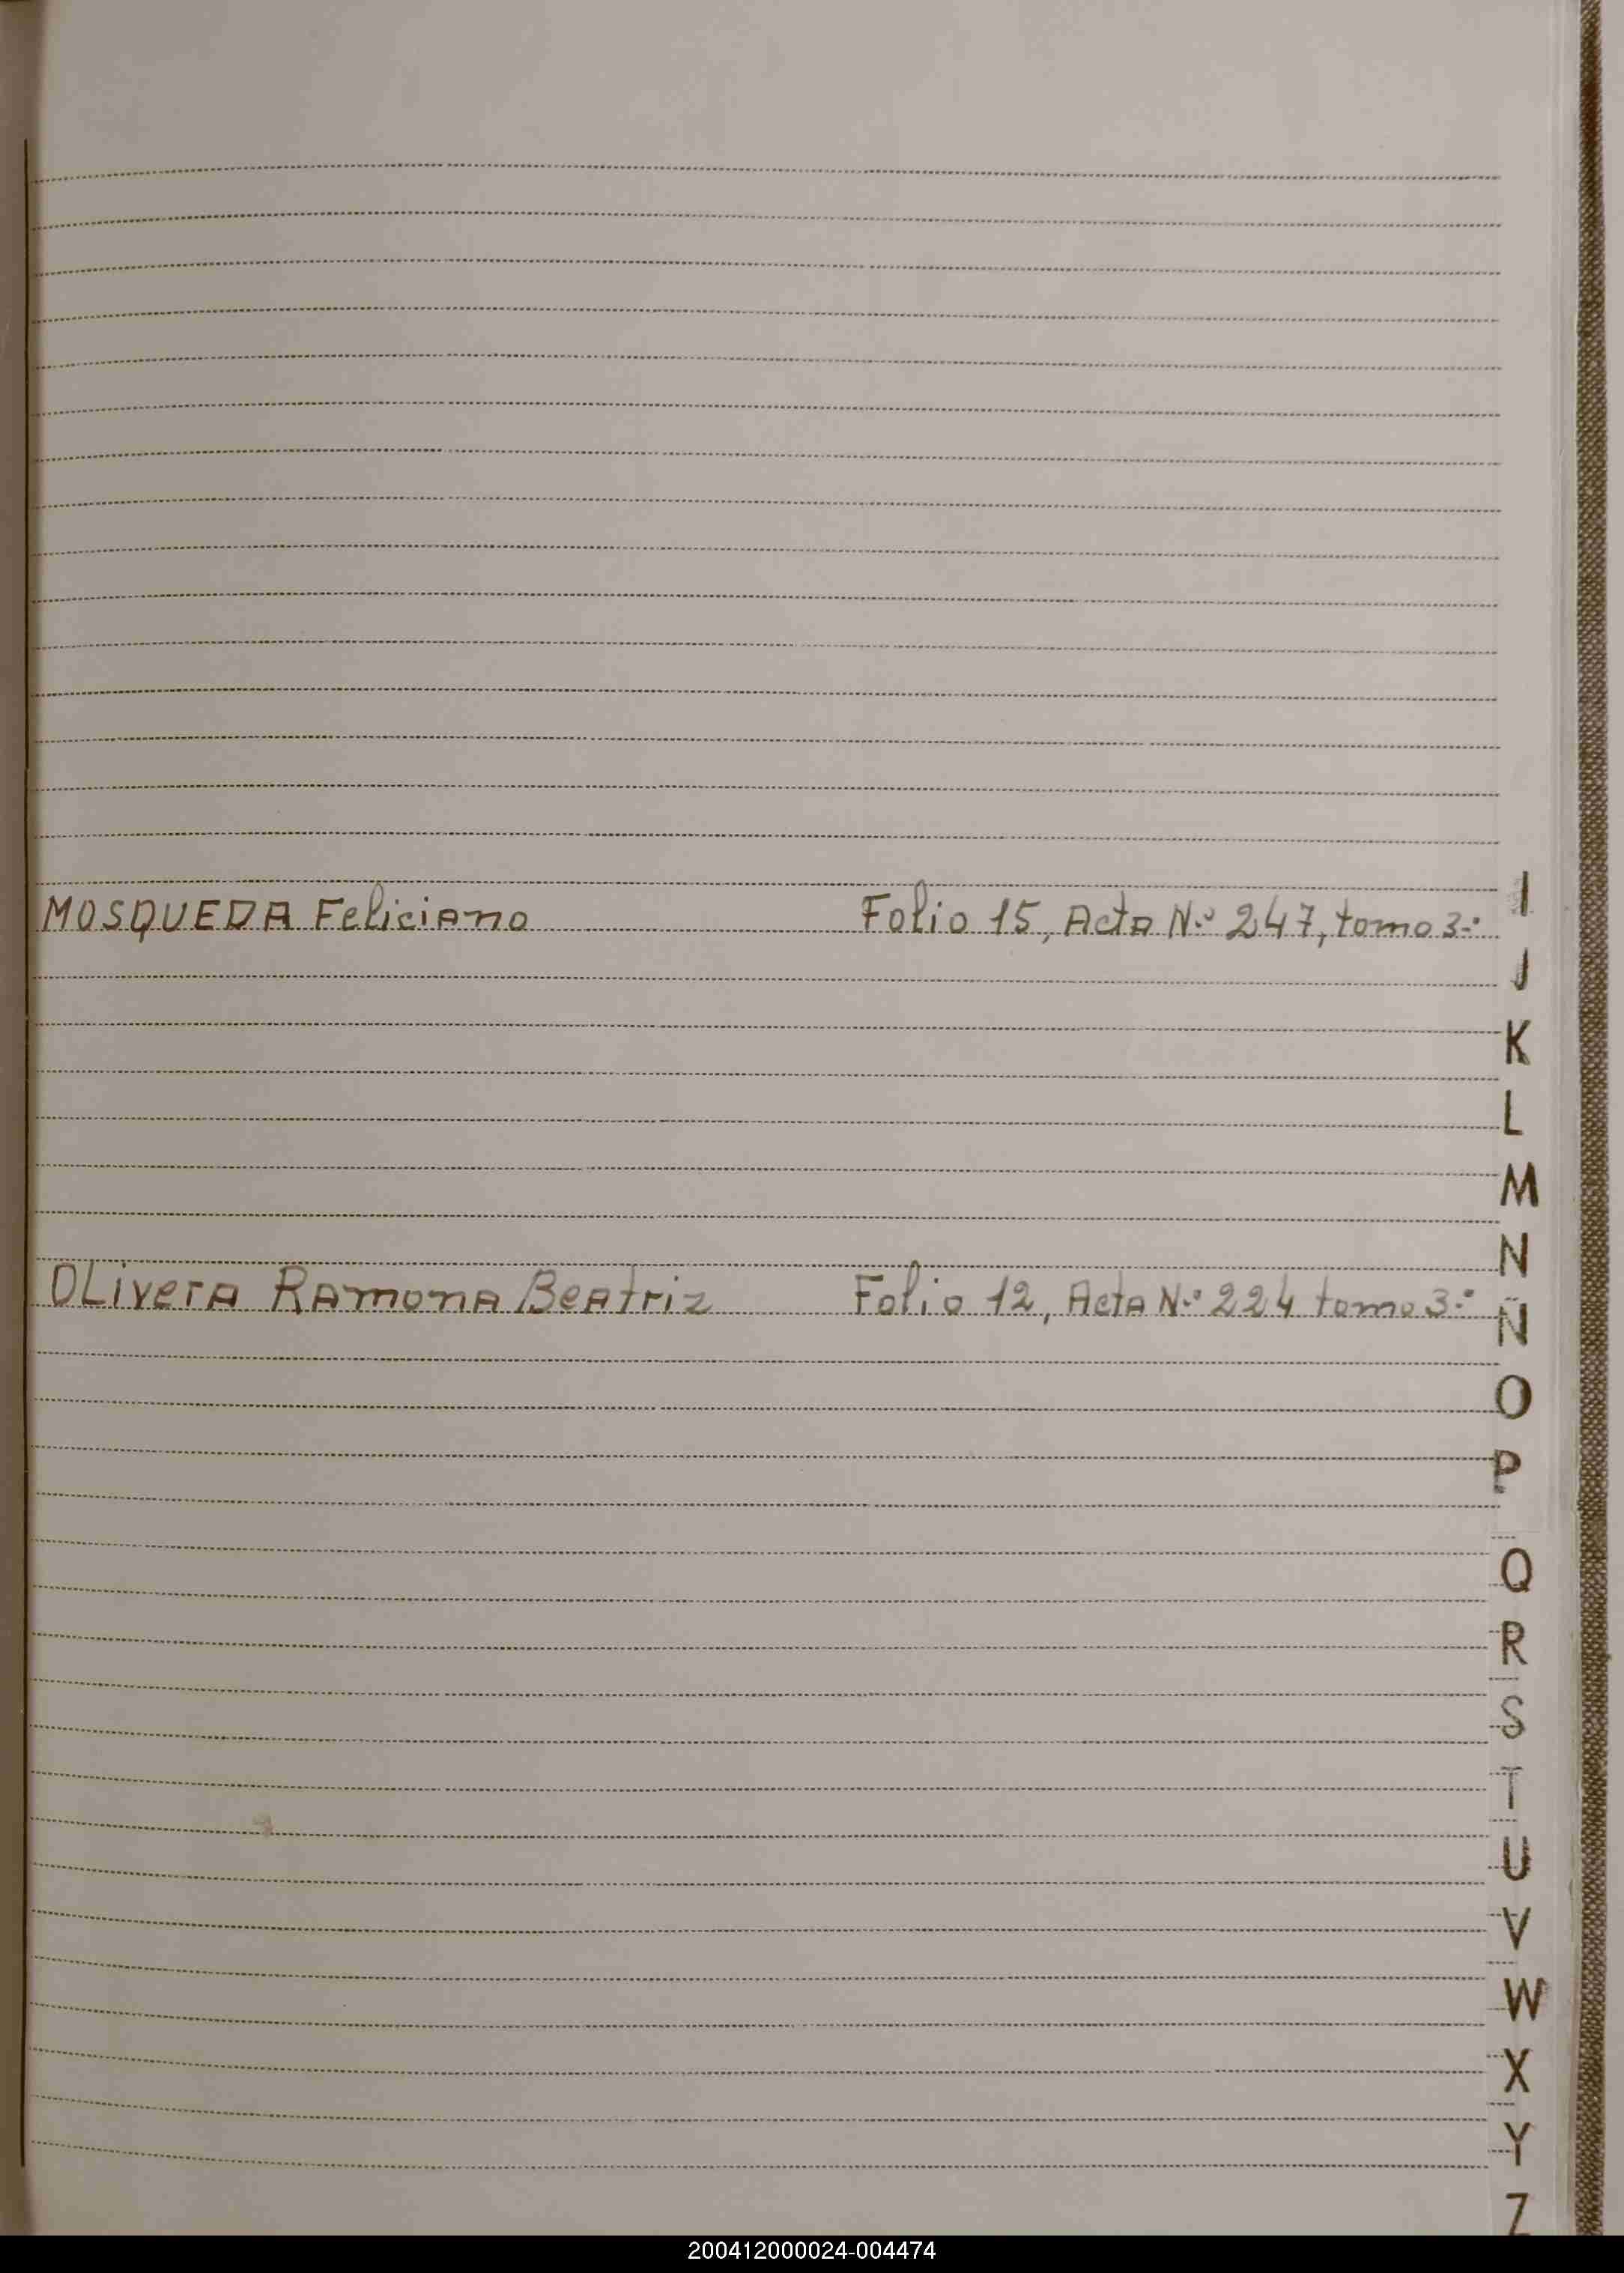 MOSQUEDA Feliciano Folio 15, Acta N.º 247, tomo 3.º
OLivera Ramona Beatriz Folio 12, Acta N.º 224 tomo 3.º
I
J
K
L
M
N
Ñ
O
P
Q
R
S
T
U
V
W
X
Y
Z
200412000024-004474